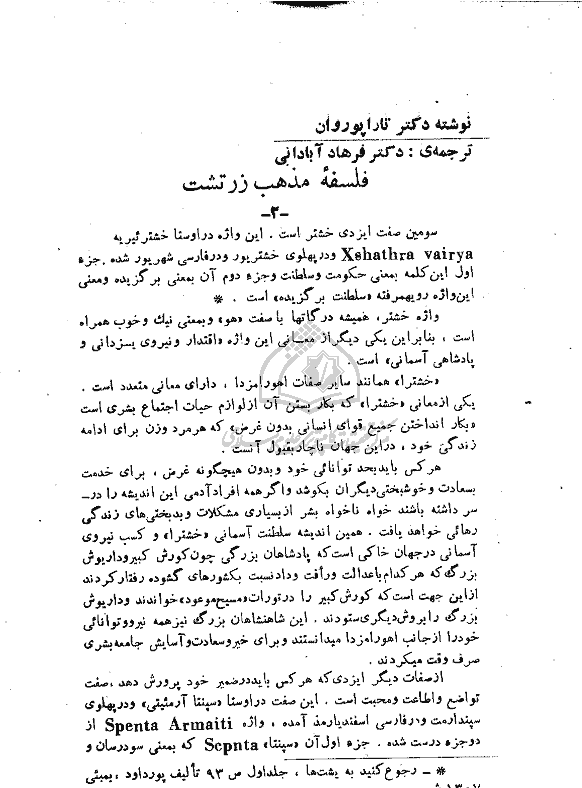 نوشته دکتر تاراپوروان
ترجمه‌ی : دکتر فرهاد آبادانی
فلسفهٔ مذهب زرتشت
-۳-
سومین صفت ایزدی خشتر است . این واژه دراوستا خشترئیریه
Xshathra vairya ودرپهلوی خشتریور ودرفارسی شهریور شده . جزء
اول این کلمه بمعنی حکومت وسلطنت وجزء دوم آن بمعنی برگزیده ومعنی
این‌واژه رویهمرفته «سلطنت برگزیده» است . *
واژه خشتر، همیشه درگاتها با صفت «هو» وبمعنی نیك وخوب همراه
است ، بنابراین یکی دیگراز معانی این واژه «اقتدار ونیروی یـزدانی و
پادشاهی آسمانی» است .
«خشترا» همانند سایر صفات اهورامزدا ، دارای معانی متعدد است .
یکی ازمعانی «خشترا» که بکار بستن آن ازلوازم حیات اجتماع بشری است
«بکار انداختن جمیع قوای انسانی بدون غرض» که هرمرد وزن برای ادامه
زندگی خود ، دراین جهان ناچاربقبول آنست .
هرکس بایدبحد توانائی خود وبدون هیچگونه غرض ، برای خدمت
بسعادت وخوشبختی‌دیگران بکوشد واگرهمه افرادآدمی این اندیشه را درـ
سر داشته باشند خواه ناخواه بشر ازبسیاری مشکلات وبدبختی‌های زندگی
رهائی خواهد یافت . همین اندیشه سلطنت آسمانی «خشترا» و کسب نیروی
آسمانی درجهان خاکی است‌که پادشاهان بزرگی چون‌کورش کبیروداریوش
بزرگ‌که هرکدام‌باعدالت ورأفت ودادنسبت بکشورهای گشوده رفتارکردند
ازاین جهت است‌که کورش‌کبیر را درتورات«مسیح‌موعود»خواندند وداریوش
بزرگ رابروش‌دیگری‌ستودند . این شاهنشاهان بزرگ نیزهمه نیرووتوانائی
خودرا ازجانب اهورامزدا میدانستند وبرای خیروسعادت‌وآسایش جامعه‌بشری
صرف وقت میکردند .
ازصفات دیگر ایزدی‌که هرکس بایددرضمیر خود پرورش دهد ،صفت
تواضع واطاعت ومحبت است . این صفت دراوستا «سپنتا آرمئیتی» ودرپهلوی
سپندارمت ودرفارسی اسفندیارمذ آمده ، واژه Spenta Armaiti از
دوجزء درست شده . جزء اول‌آن «سپنتا» Scpnta که بمعنی سودرسان و
* – رجوع‌کنید به یشت‌ها ، جلداول ص ۹۳ تألیف پورداود ، بمبئی